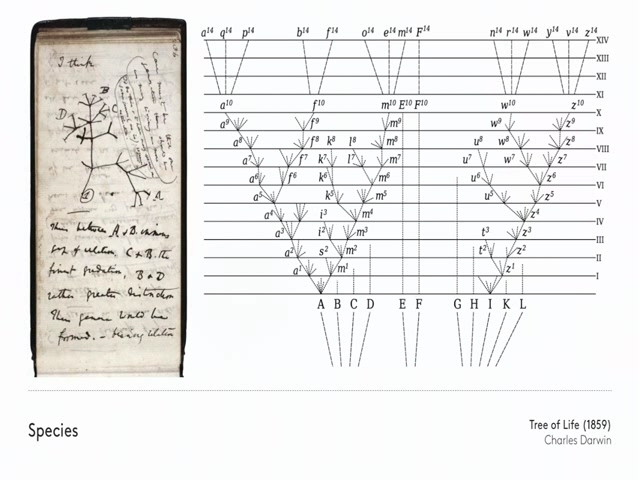 I think
B
D
C
A
1
Thus between A & B. immense
gap of relation. C & B. the
finest gradation, B & D
rather greater distinction
Thus genera would be
formed. — bearing relation
a14 q14 p14 b14 f14 o14 e14 m14 F14 n14 r14 w14 y14 v14 z14
XIV
XIII
XII
XI
a10 f10 m10 E10 F10 w10 z10
X
a9 f9 m9 w9 z9
IX
a8 f8 k8 l8 m8 u8 w8 z8
VIII
a7 f7 k7 l7 m7 u7 w7 z7
VII
a6 f6 k6 m6 u6 z6
VI
a5 k5 m5 u5 z5
V
a4 i3 m4 z4
IV
a3 i2 m3 t3 z3
III
a2 s2 m2 t2 z2
II
a1 m1 z1
I
A B C D E F G H I K L
Species
Tree of Life (1859)
Charles Darwin